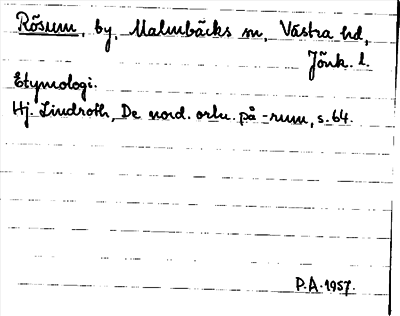 Rösum, by, Malmbäcks sn, Västra hd,
Jönk. l.
Etymologi.
Hj. Lindroth, De nord. ortn. på -rum, s. 64.
P.A. 1957.